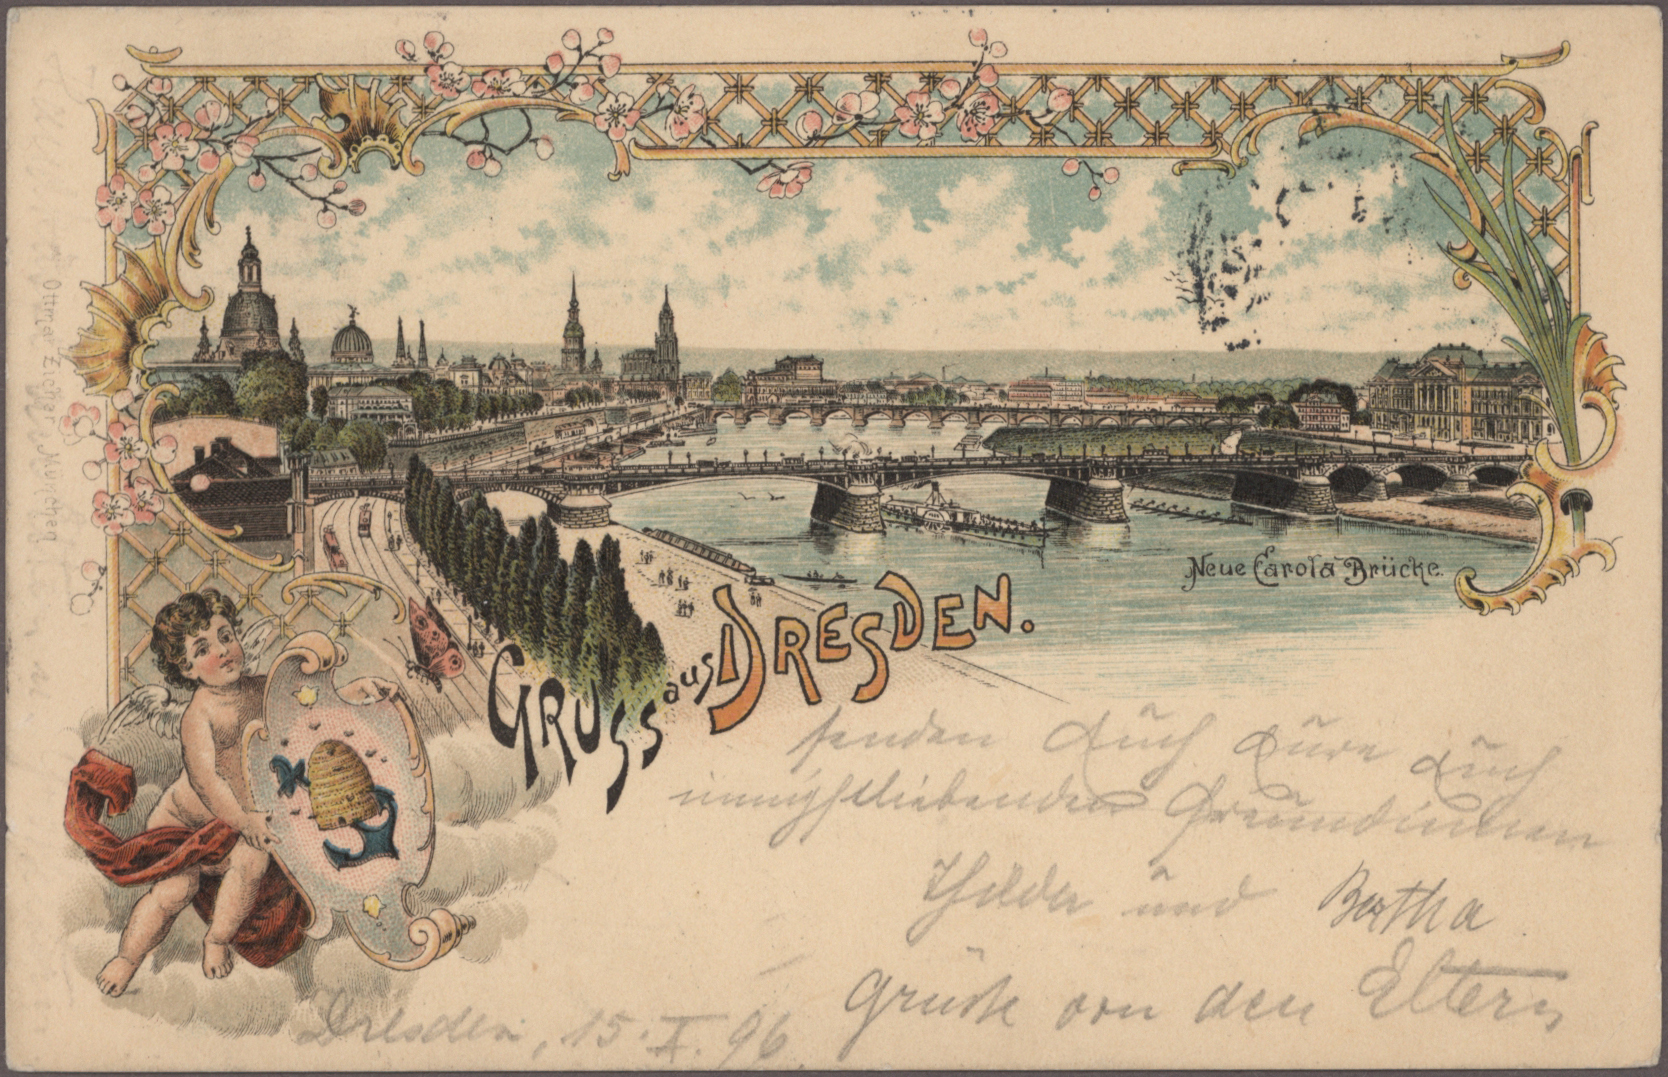 Ottmar Zieher München
Neue Carola Brücke.
GRUSS aus DRESDEN.
senden Euch Eure Euch
innigstliebenden Freundinnen
Hilda und Bertha
Grüße von den Eltern
Dresden, 15. X. 96